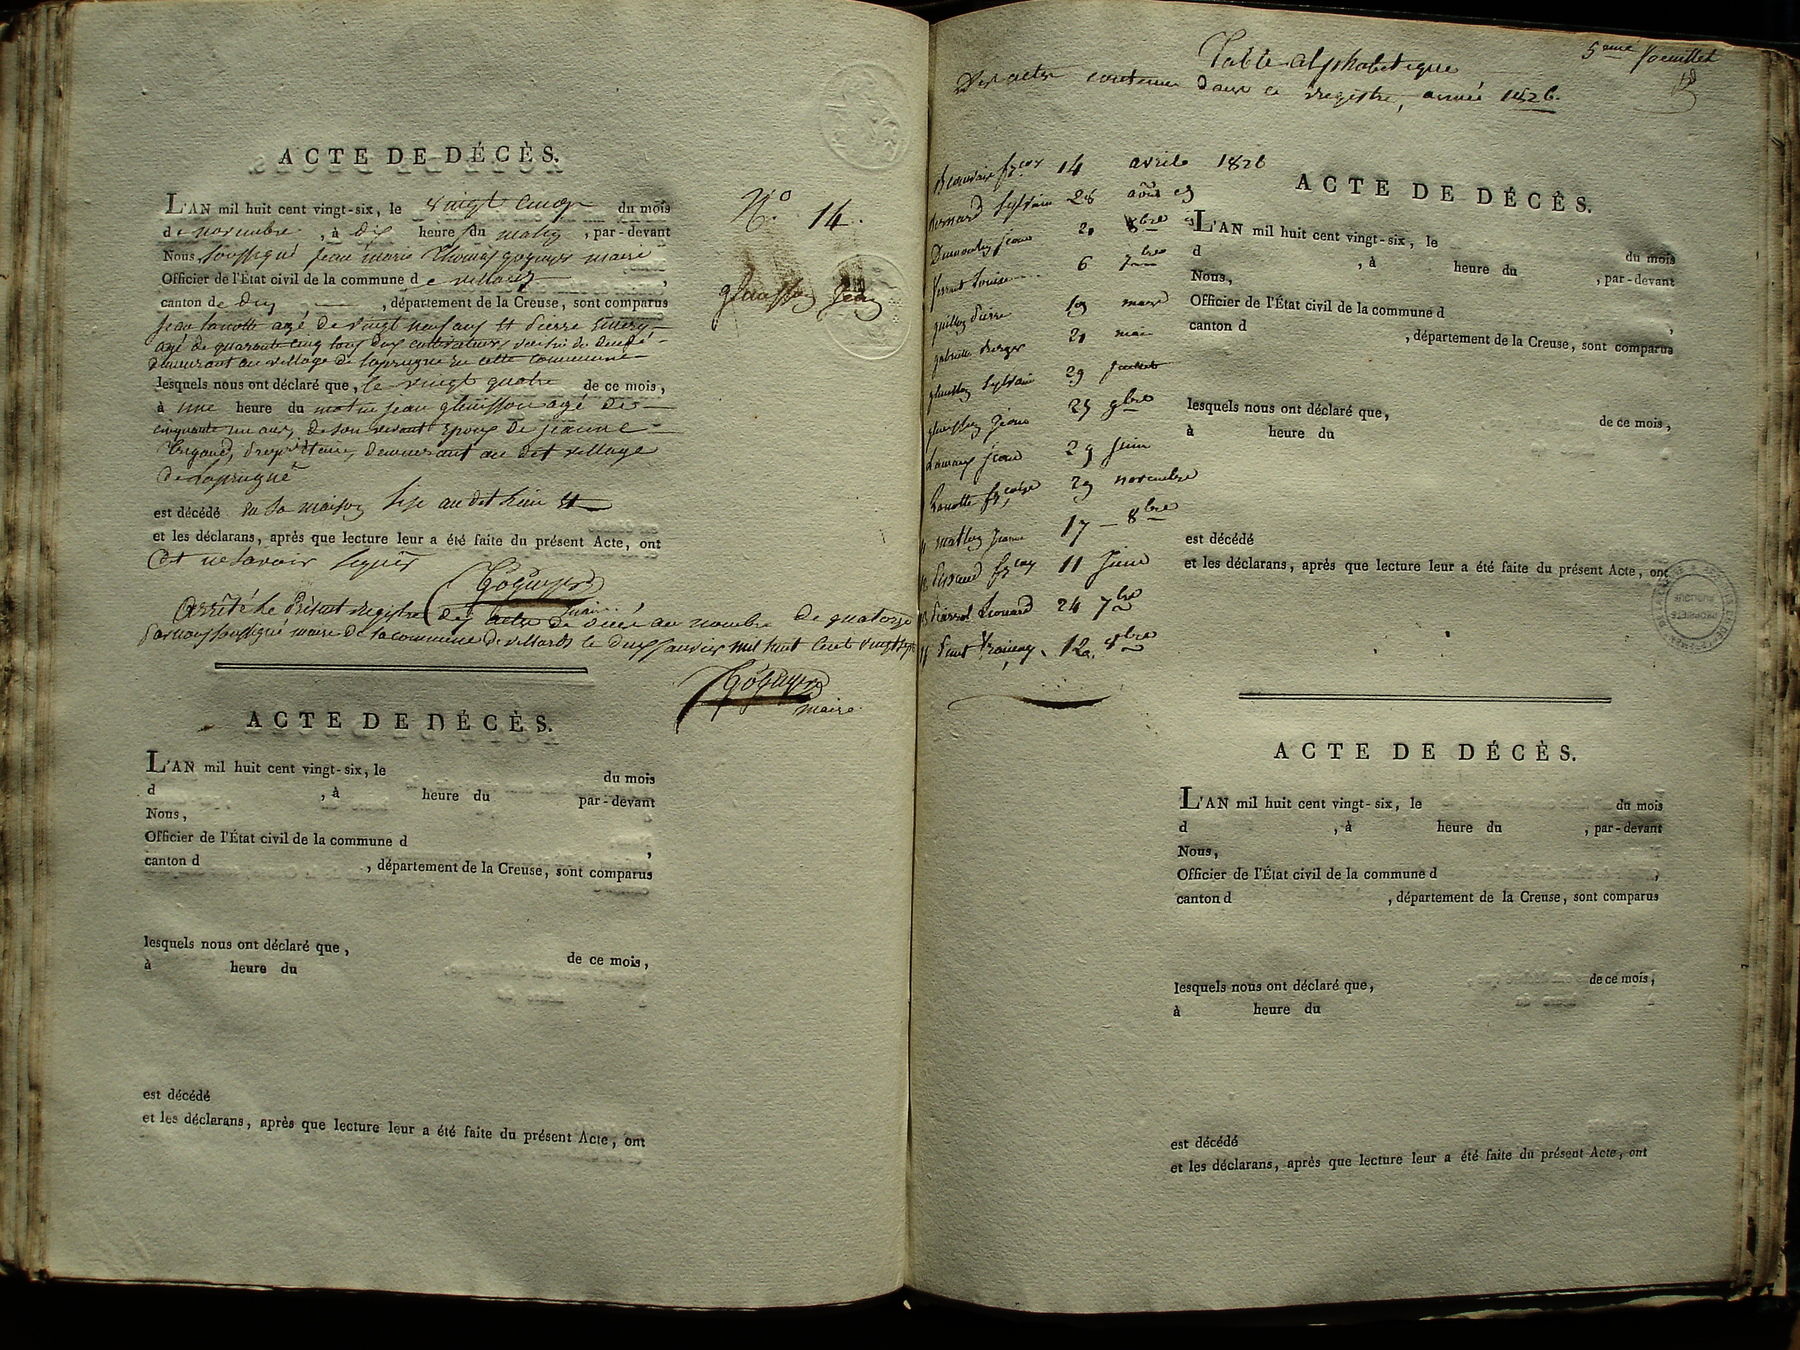 ACTE DE DÉCÈS.
L'AN mil huit cent vingt-six, le vingt cinq du mois
de novembre, à dix heure du matin, par-devant
Nous, soussigné jean marie Thomas maire
Officier de l'État civil de la commune de villards,
canton de dun, département de la Creuse, sont comparus
jean lanotte agé de vingt neuf ans et Pierre
agé de quarante cinq tous deux cultivateurs du
demeurant au village de laprugne en cette commune
lesquels nous ont déclaré que, le vingt quatre de ce mois,
à une heure du matin jean agé de
cinquante un ans, de son vivant Epoux de jeanne
propriétaire, demeurant au dit village
de Laprugne
est décédé en sa maison sise au dit lieu et
et les déclarans, après que lecture leur a été faite du présent Acte, ont
dit ne savoir signer
maire
Arrêté le présent registre des actes de décés au nombre de quatorze
Par nous soussigné maire de la commune de villards le deux janvier mil huit cent vingt sept
maire
N.° 14.
jean
ACTE DE DÉCÈS.
L'AN mil huit cent vingt-six, le du mois
d , à heure du par-devant
Nous,
Officier de l'État civil de la commune d ,
canton d , département de la Creuse, sont comparus
lesquels nous ont déclaré que, de ce mois,
à heure du
est décédé
et les déclarans, après que lecture leur a été faite du présent Acte, ont
5eme feuillet
Table alphabetique
Des actes contenus dans ce registre, année 1826.
14 avril 1826
Bernard Sylvain 28 août
jean 8bre
Louise 6 7bre
Pierre 19 mars
21 mai
Sylvain 29 juillet
jean 25 9bre
jean 29 juin
Lanotte 29 novembre
jeanne 17 8bre
11 juin
Léonard 24 7bre
12
ACTE DE DÉCÈS.
L'AN mil huit cent vingt-six, le du mois
d , à heure du , par-devant
Nous,
Officier de l'État civil de la commune d ,
canton d , département de la Creuse, sont comparus
lesquels nous ont déclaré que, de ce mois,
à heure du
est décédé
et les déclarans, après que lecture leur a été faite du présent Acte, ont
PROPRIÉTÉ
PUBLIQUE
ACTE DE DÉCÈS.
L'AN mil huit cent vingt-six, le du mois
d , à heure du , par-devant
Nous,
Officier de l'État civil de la commune d ,
canton d , département de la Creuse, sont comparus
lesquels nous ont déclaré que, de ce mois,
à heure du
est décédé
et les déclarans, après que lecture leur a été faite du présent Acte, ont